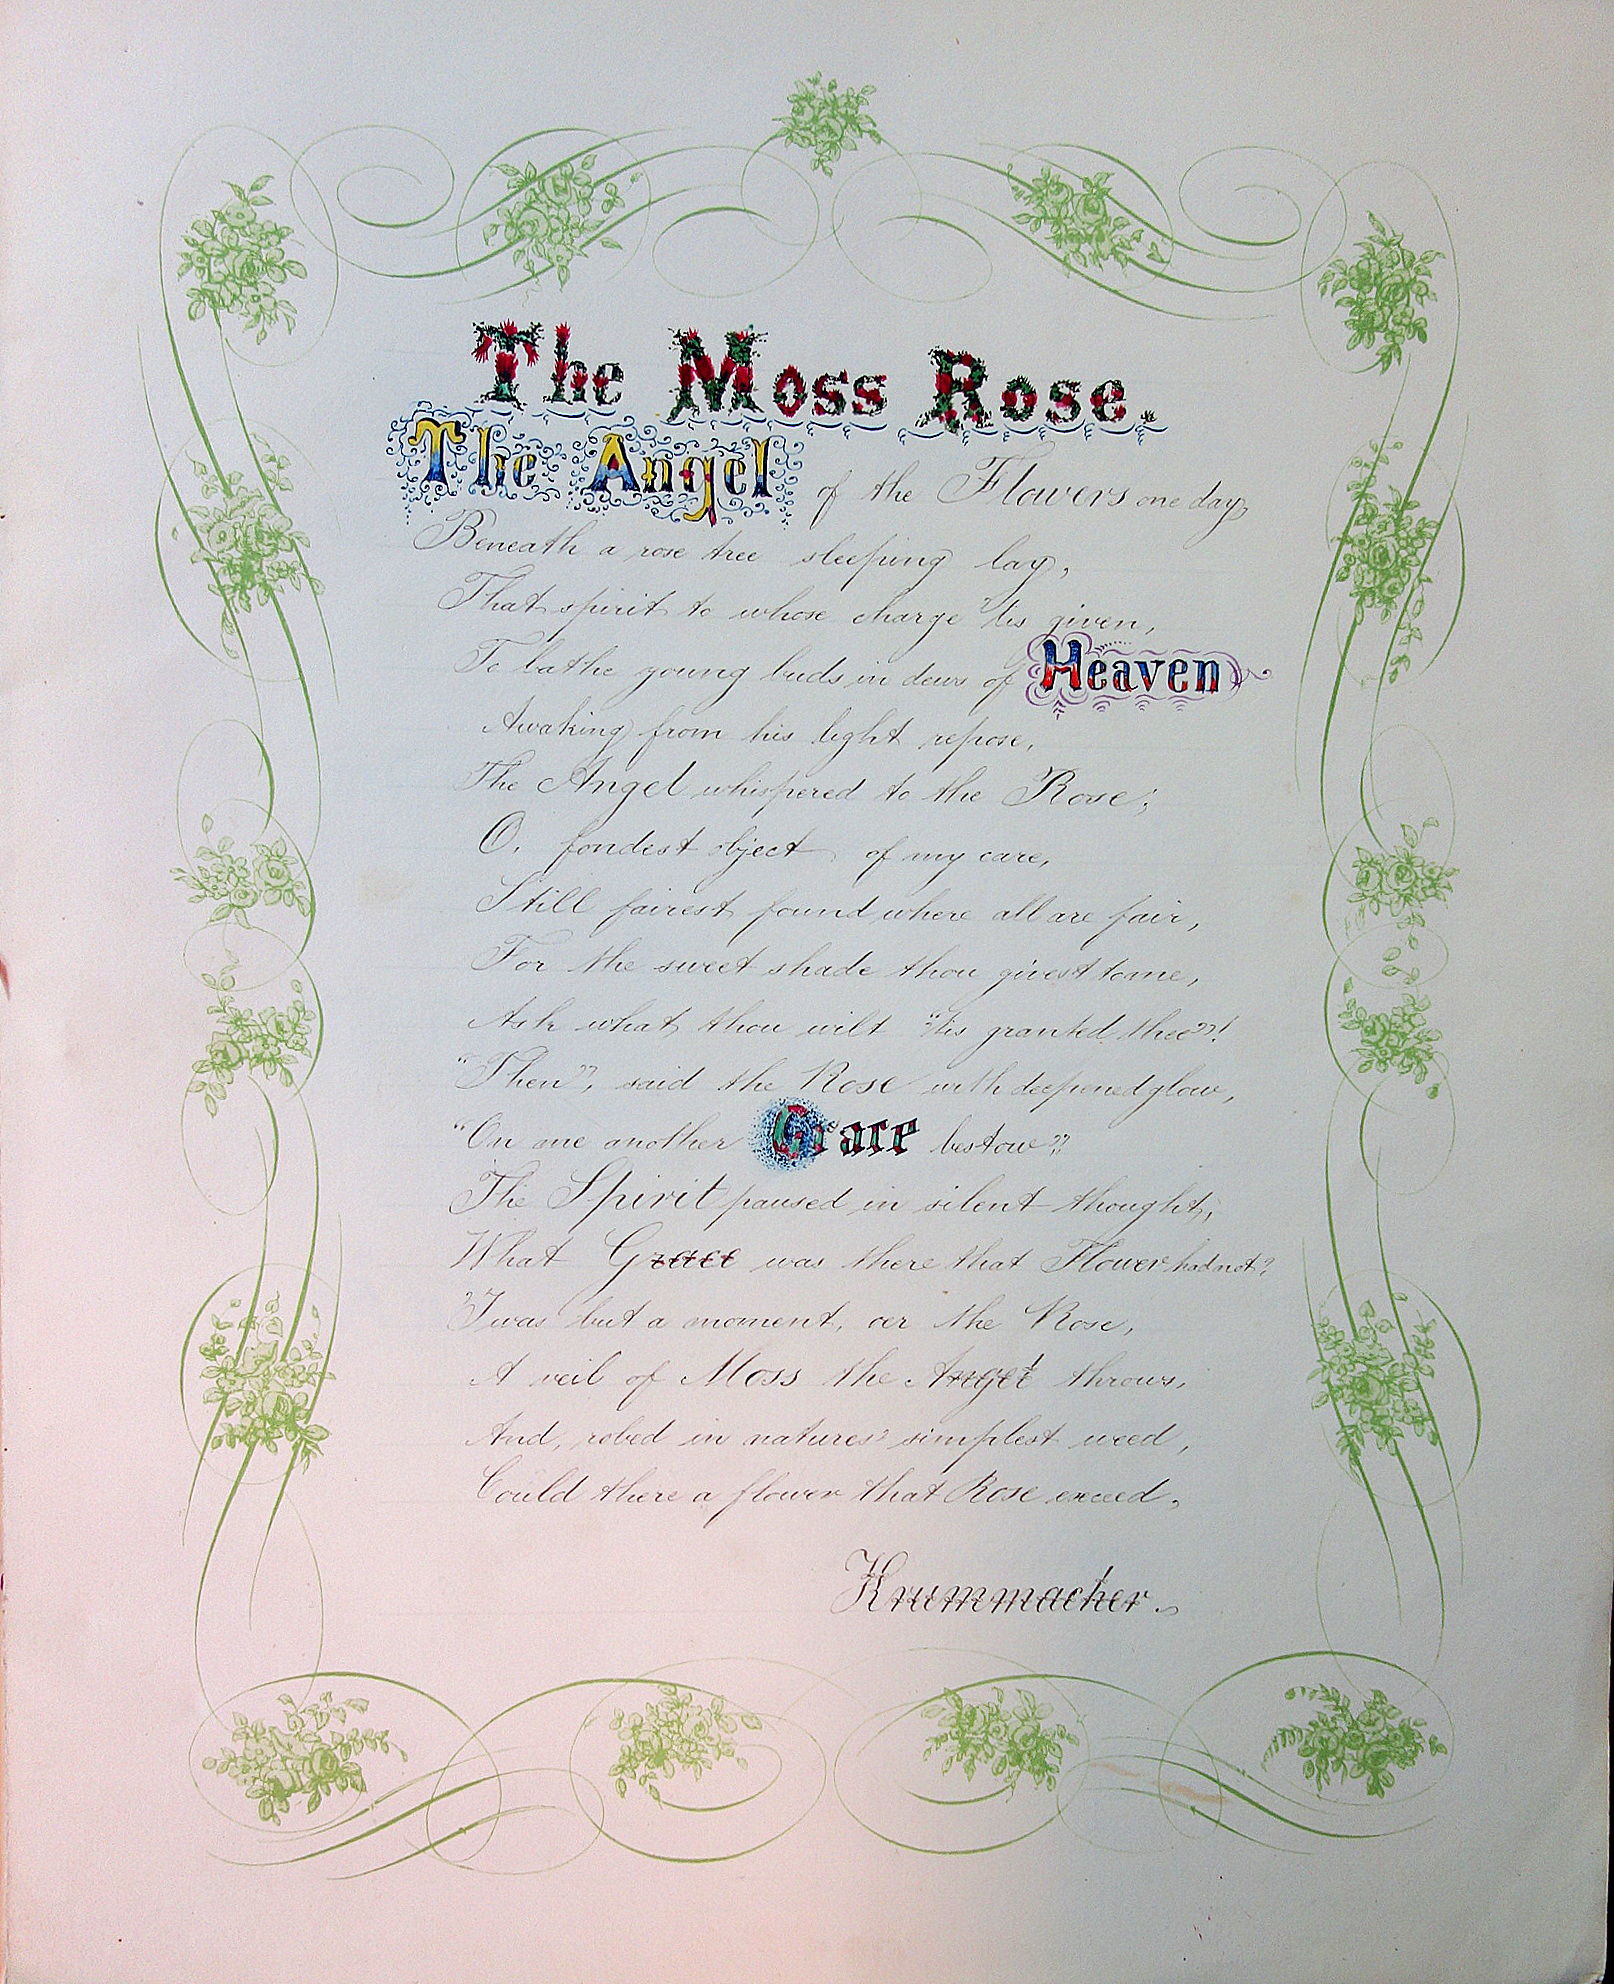 The Moss Rose.
The Angel of the Flowers one day,
Beneath a rose tree sleeping lay,
That spirit to whose charge 'tis given,
To bathe young buds in dews of Heaven
Awaking from his light repose,
The Angel whispered to the Rose;
O, fondest object of my care,
Still fairest found where all are fair,
For the sweet shade thou givest to me,
Ask what thou wilt "'tis granted thee"!
"Then", said the Rose with deepened glow,
"On me another Grace bestow"
The Spirit paused in silent thought,
What Grace was there that Flower had not?
'Twas but a moment, oer the Rose,
A veil of Moss the Angel throws,
And, robed in natures' simplest weed,
Could there a flower that Rose exceed,
Krummacher.